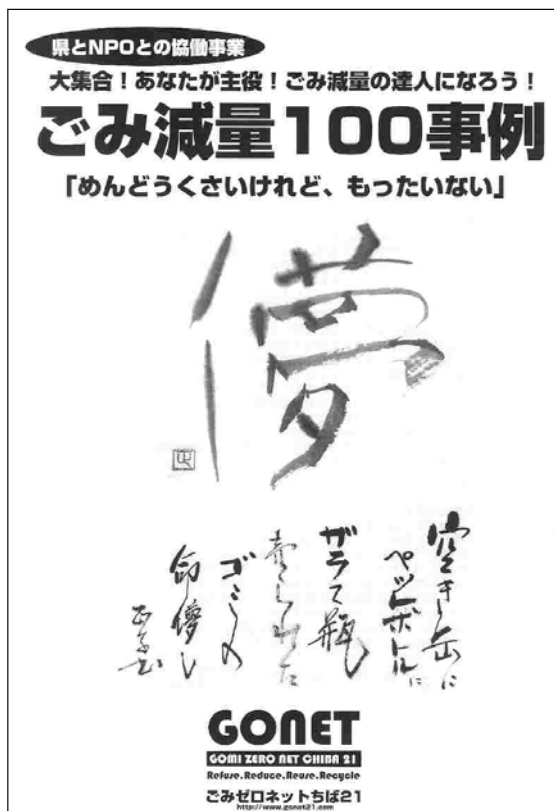 県とNPOとの協働事業
大集合！あなたが主役！ごみ減量の達人になろう！
ごみ減量100事例
「めんどうくさいけれど、もったいない」
儚
空き缶に
ペットボトルに
ガラス瓶
売られた
ゴミの
命儚し
GONET
GOMI ZERO NET CHIBA 21
Refuse.Reduce.Reuse.Recycle
ごみゼロネットちば21
http://www.gonet21.com